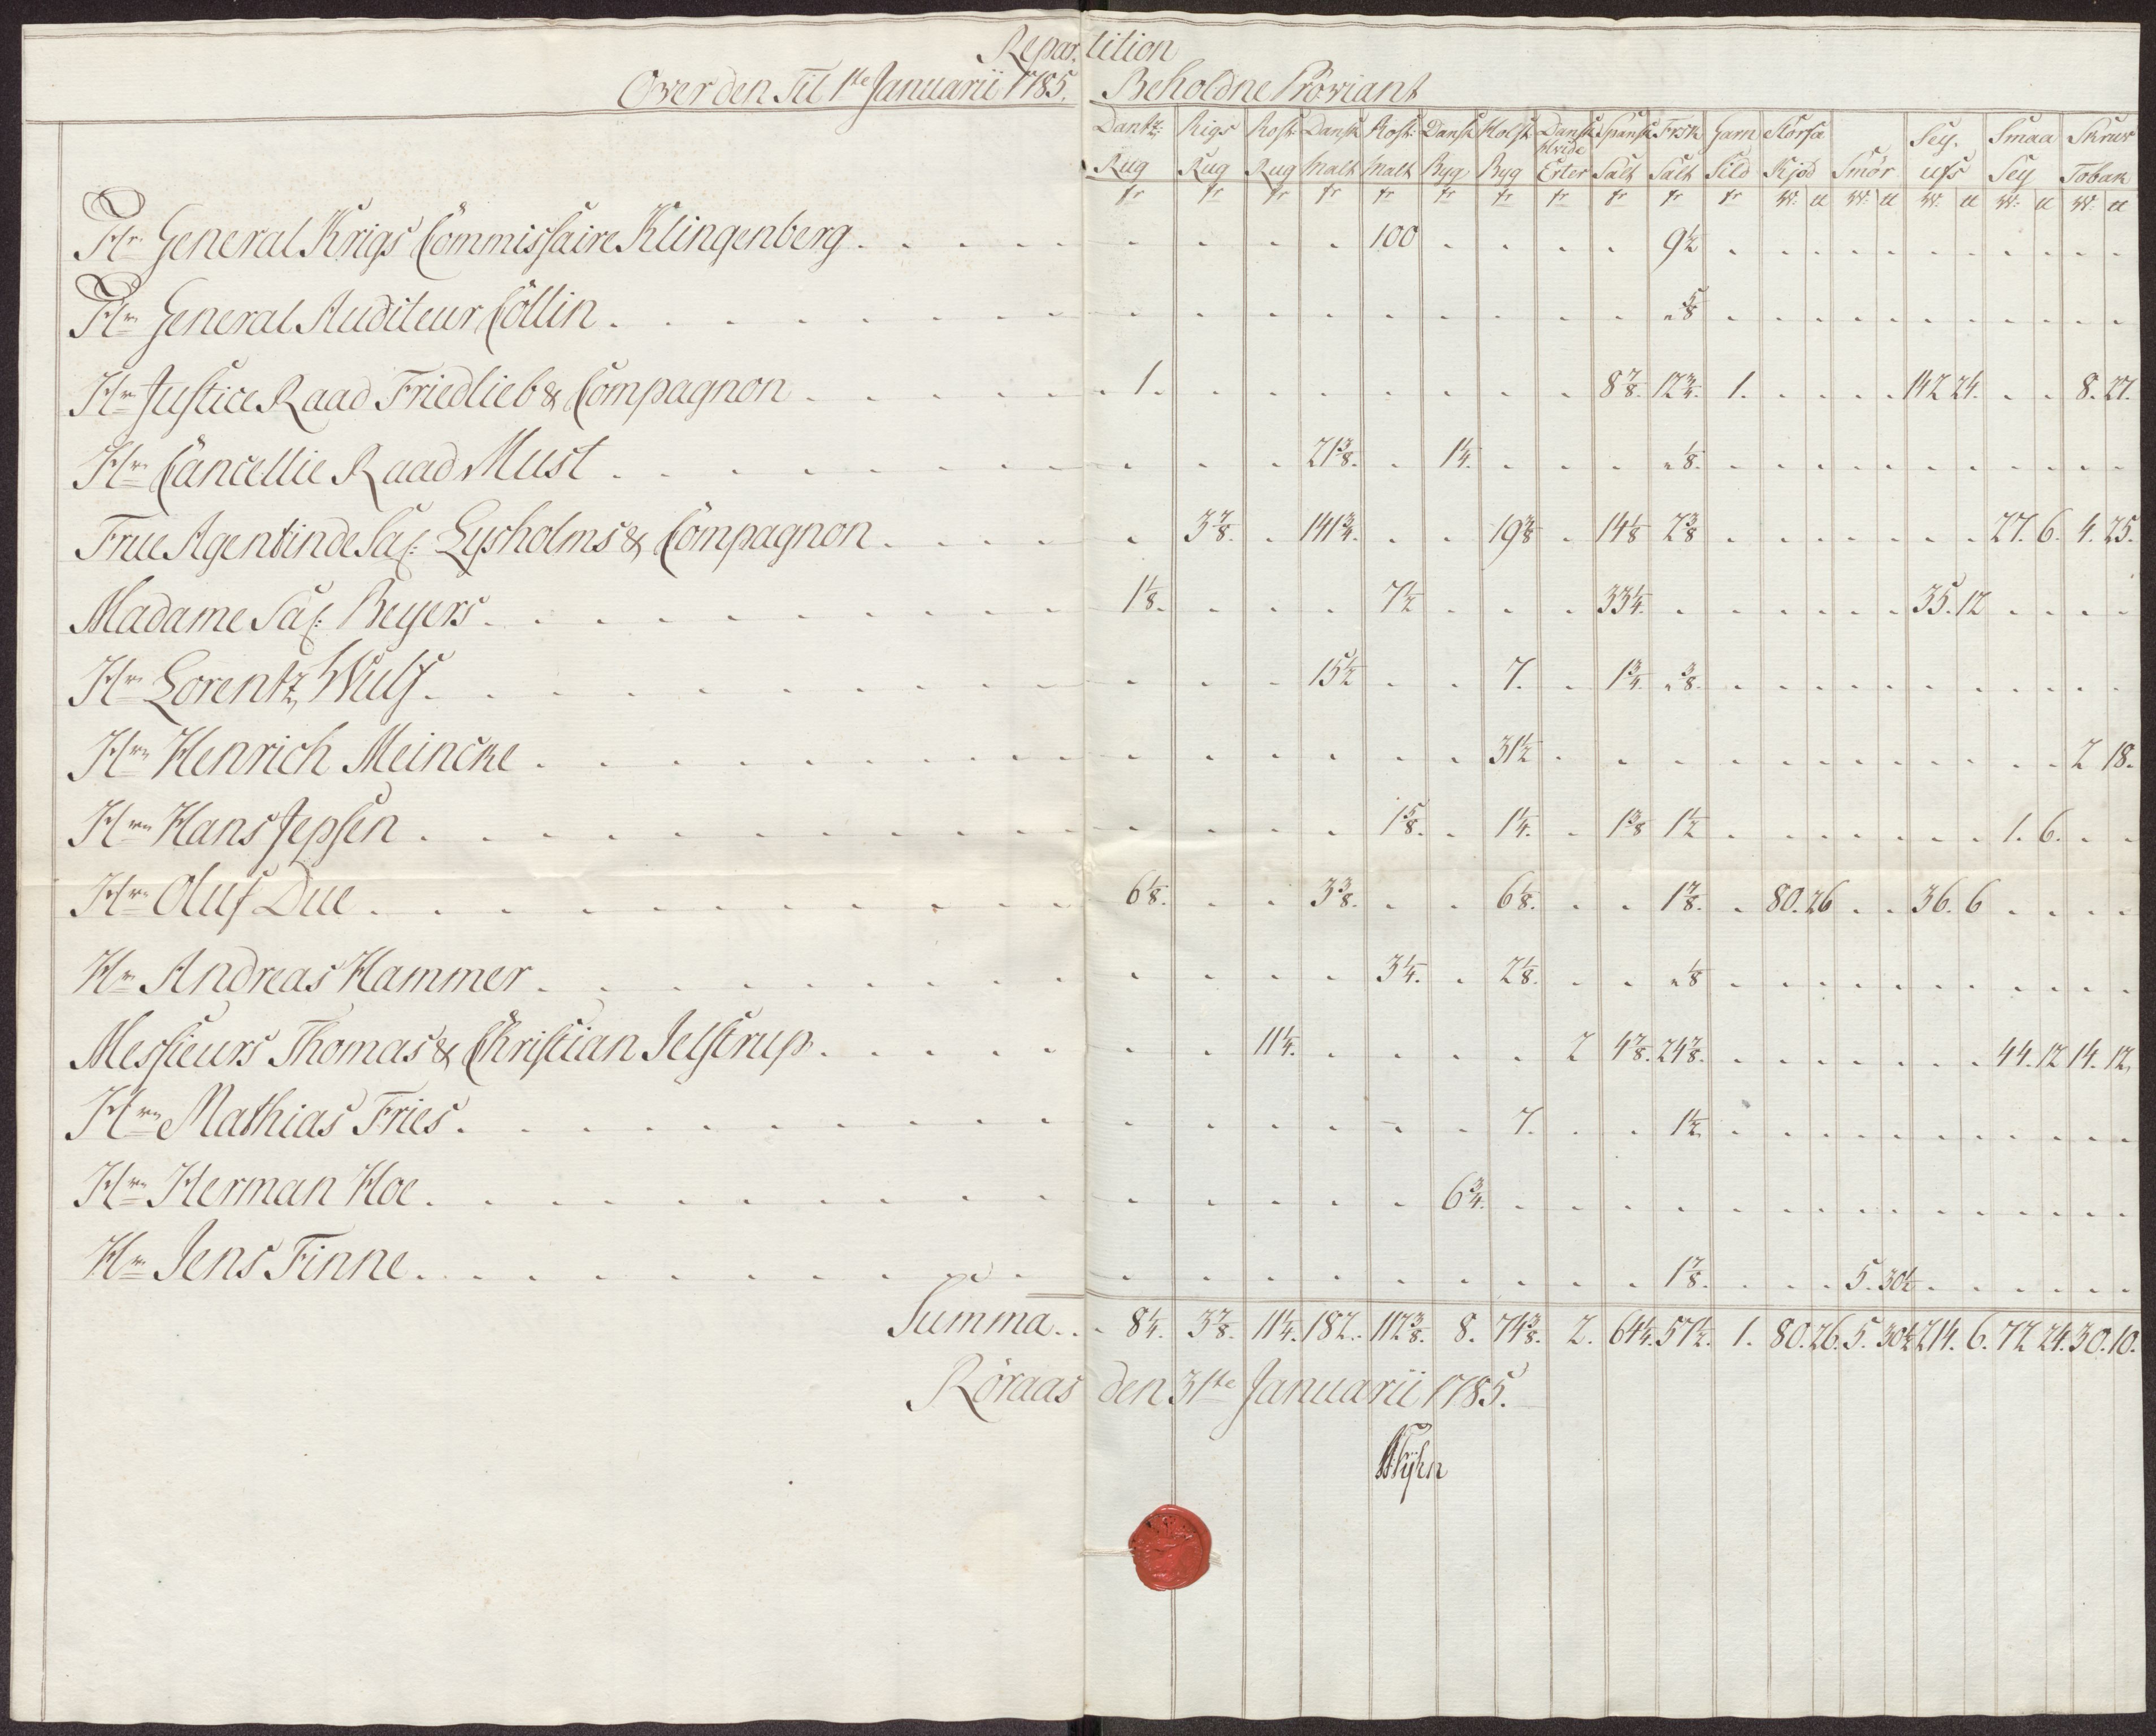 Repartition
Over den Til 1ste Januarii 1785. Beholdne Proviant
Dantz: Rug fr | Rigs Rug fr | Rost: Rug fr | Dansk Malt fr | Rost: Malt fr | Dansk Byg fr | Holst: Byg fr | Dansk Hvide Erter fr | Spansk Salt fr | Frsk Salt fr | Garn Sild fr | Kjöd W: ℔ | Smör W: ℔ | Sey W: ℔ | Smaa Sey W: ℔ | Skruv Tobak W: ℔
Hr General Krigs Commissaire Klingenberg . . . . 100 . . . . 9½ . . .
Hr General Auditeur Collin . . . . " 5/8 . . .
Hr Justice Raad Friedlieb & Compagnon . . . 1. . . . 8 7/8. 12 3/4. 1. . . . 142 24. . . 8. 27.
Hr Cancellie Raad Must . . . . 21 3/8. . 1 1/4. . . . " 1/8. . . .
Frue Agentinde Sal: Lysholms & Compagnon . . . . 3 7/8. . 141 3/4. . . 19 3/8 . 14 1/8 2 3/8 . . . . 27. 6. 4. 25.
Madame Sal: Beyers . . . . 1 1/8. . . . 7½ . . . 33 1/4. . . . 35. 12 . . . .
Hr Lorentz Wulf . . . . 15½ . . 7. . 1 3/4. " 3/8. . . .
Hrn Henrich Meincke . . . . 31½ . . . . 2 18.
Hrn Hans Jepsen . . . . 1 5/8. . 1 1/4. . 1 3/8 1½ . . . . 1. 6. . .
Hrn Oluf Due . . . . 6 1/8. . . 3 3/8. . . 6 1/8. . . 1 7/8. . 80. 26 . . 36. 6 . . . .
Hr Andreas Hammer . . . . 3 1/4. . 2 1/8. . . " 1/8 . . .
Messieurs Thomas & Christian Jelstrup . . . . 11 1/4. . . . . . 2 4 7/8. 24 7/8. . . . . 44. 12 14. 12.
Hrn Mathias Fries . . . . 7. . . 1½. . . .
Hrn Herman Hoe . . . . 6 3/4. . . .
Hr Jens Finne . . . . 1 7/8. . . . 5. 30½ . . . .
Summa . . . 8 1/4. 3 7/8. 11 1/4. 182. 112 3/8. 8. 74 3/8. 2. 64 1/4. 57½. 1. 80. 26. 5. 30½ 214. 6. 72 24. 30. 10.
Röraas den 31te Januarii 1785.